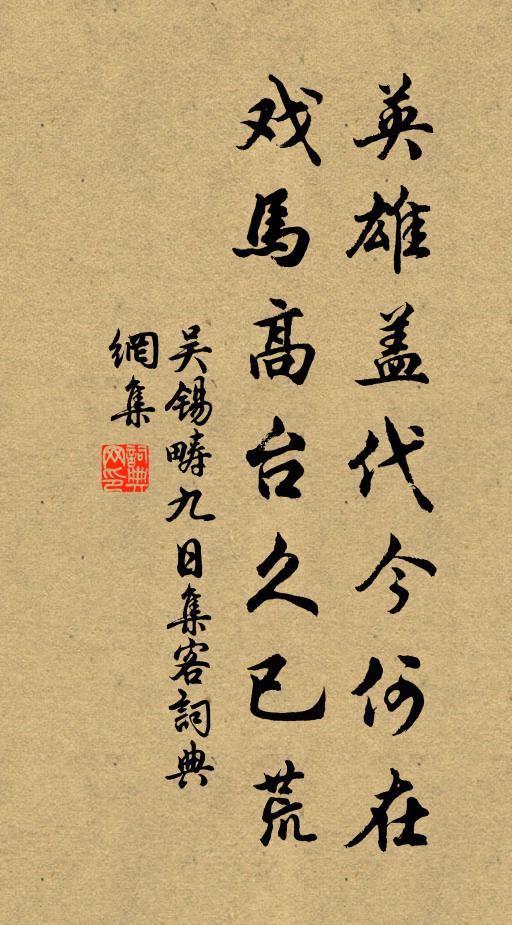 英雄盖代今何在
戏馬高台久已荒
吴锡疇九日集客詞典
網集
詞典
网印